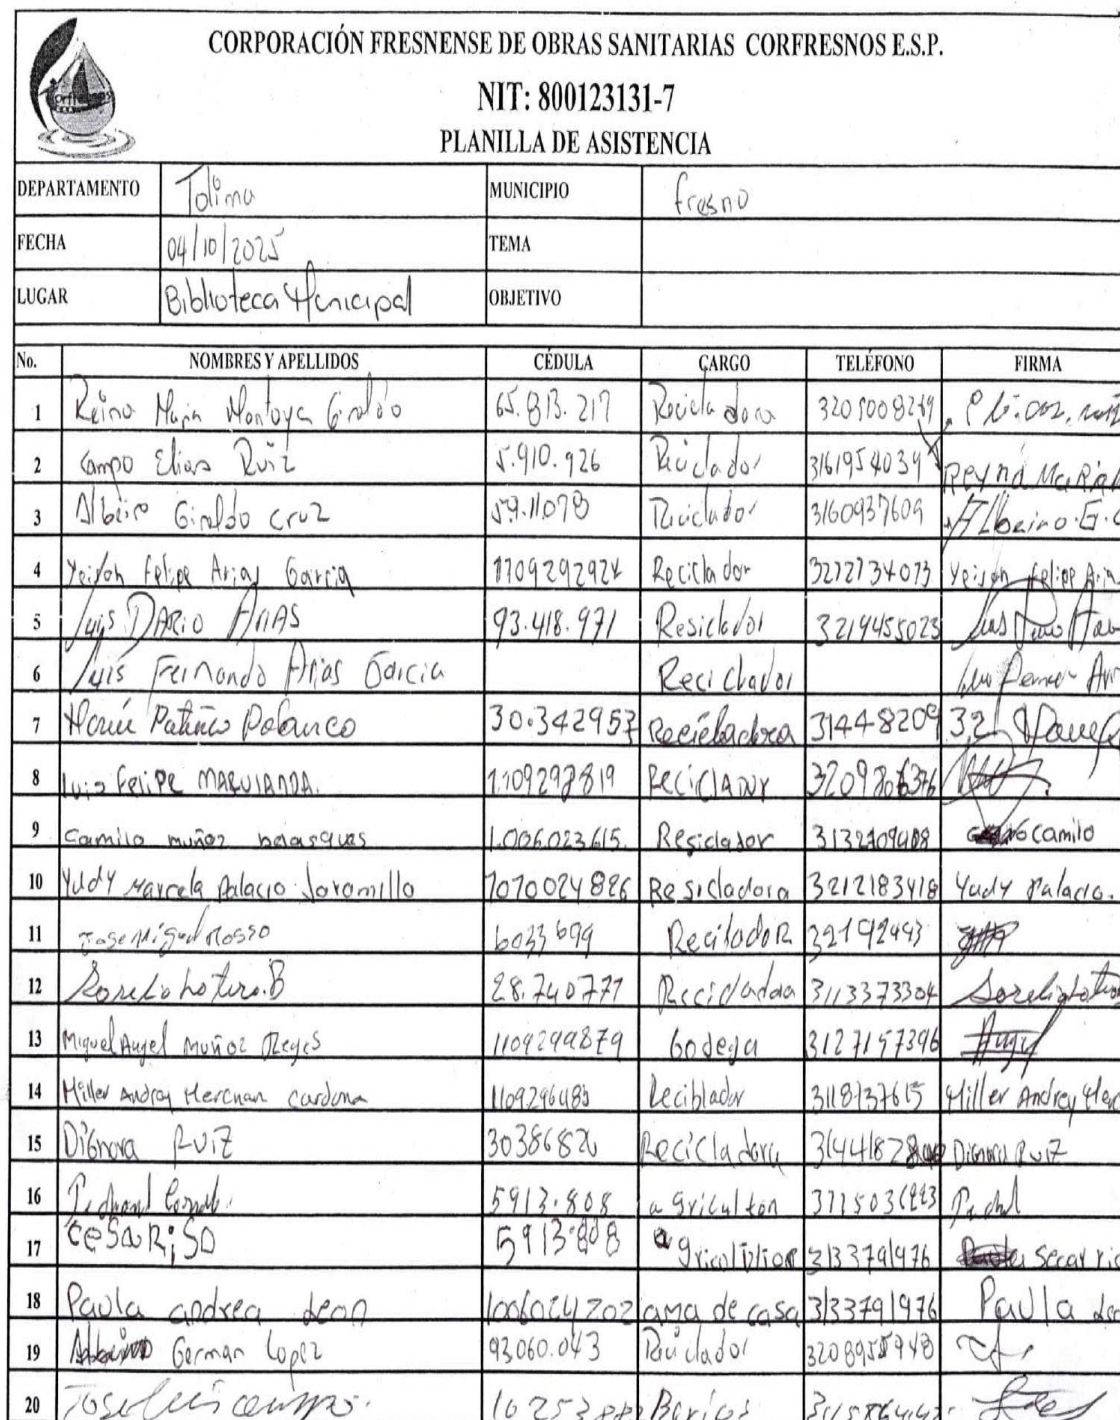 CORPORACIÓN FRESNENSE DE OBRAS SANITARIAS CORFRESNOS E.S.P.
NIT: 800123131-7
PLANILLA DE ASISTENCIA
DEPARTAMENTO Tolima MUNICIPIO fresno
FECHA 04/10/2025 TEMA
LUGAR Biblioteca Municipal OBJETIVO
No. NOMBRES Y APELLIDOS CÉDULA CARGO TELÉFONO FIRMA
1 Reina Maria Montoya Giraldo 65.813.217 Recicladora
2 Campo Elias Ruiz 5.910.926 Reciclador 3161954039 Reyna Maria
3 Albeiro Giraldo cruz 59.11078 Reciclador 3160937609 Albeiro.G.
4 Yeison Felipe Arias Garcia 1109292924 Reciclador 3212734073 Yeison felipe Aria
5 Luis DARIO ARIAS 93.418.971 Resiclador 3219455023
6 Luis Fernando Arias Garcia Reciclador
7 Patiño Polanco 30.342957 Recicladora 31448209 32
8 Luis FeliPe MARULANDA. 1109297819 ReCiCLADOR
9 Camilo muñoz belasques 1.006.023.615. Resiclador camilo
10 Yudy Marcela Palacio Jaramillo 1070024826 Resicladora 3212183418 Yudy Palacio.
11 Jose Miguel Rosso 6033699 32192443
12 Sorelio Lotero.B 28.740777 Recicladora 3113373304
13 Miguel Angel muñoz Reyes 1109299879 bodega 3127157396
14 Miller Andrey Hernan cardona 1109296483 Reciblador 3118137615 Miller Andrey
15 Dignora Ruiz 30386820 Recicladora Dignora Ruiz
16 5913.808 agricultor
17 CeSaRiSO 5913.808 3133791976
18 Paula andrea Leon 1006024202 ama de casa 3133791976 Paula Leo
19 German Lopez 93060.043 Reciclador
20 Jose Luis